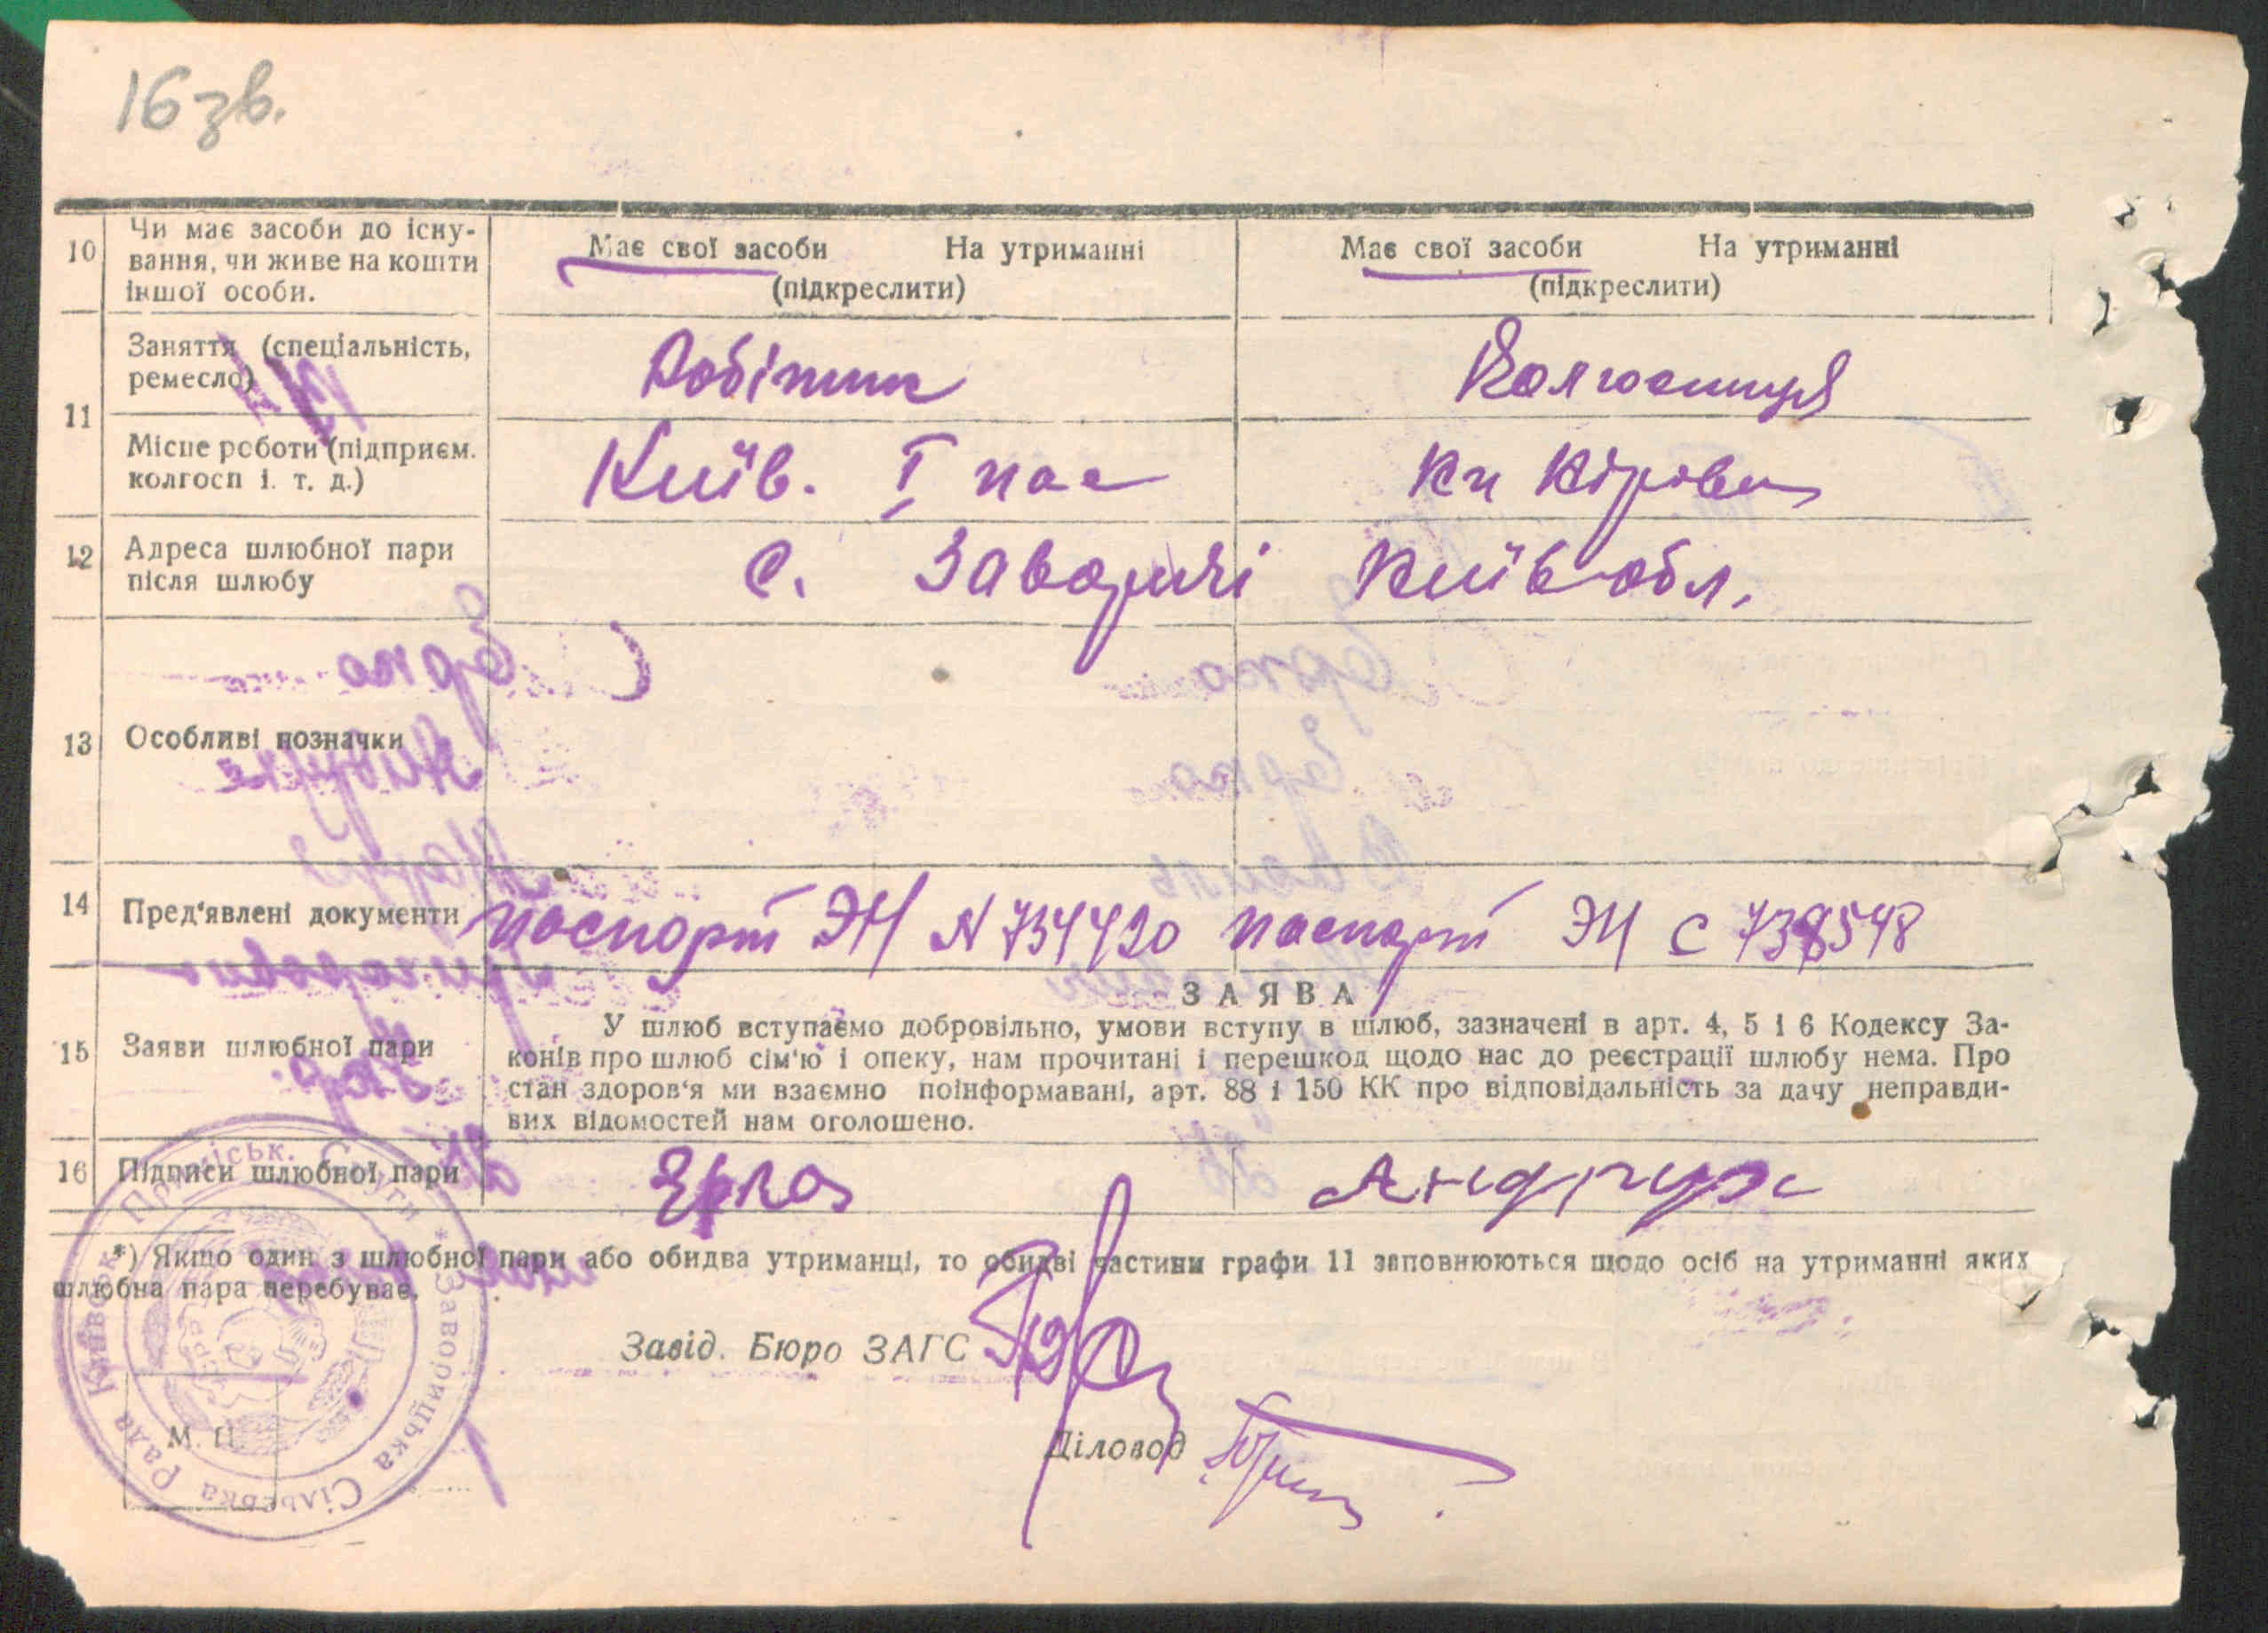 16 зв.
10 Чи має засоби до існу-
вання, чи живе на кошти
іншої особи.
Має свої засоби На утриманні
(підкреслити)
Має свої засоби На утриманні
(підкреслити)
11 Заняття (спеціальність,
ремесло)
Робітник
Колгоспниця
Місце роботи (підприєм.
колгосп і. т. д.)
Київ. I
Кірова
12 Адреса шлюбної пари
після шлюбу
с. Заворичі Київ обл.
13 Особливі позначки
14 Пред'явлені документи
паспорт N 734420 паспорт
15 Заяви шлюбної пари
ЗАЯВА
У шлюб вступаємо добровільно, умови вступу в шлюб, зазначені в арт. 4, 5 і 6 Кодексу За-
конів про шлюб сім'ю і опеку, нам прочитані і перешкод щодо нас до реєстрації шлюбу нема. Про
стан здоров'я ми взаємно поінформавані, арт. 88 і 150 КК про відповідальність за дачу неправди-
вих відомостей нам оголошено.
16 Підписи шлюбної пари
*) Якщо один з шлюбної пари або обидва утриманці, то обидві частини графи 11 заповнюються щодо осіб на утриманні яких
шлюбна пара перебуває.
Завід. Бюро ЗАГС
Діловод
М. П.
Заворицька Сільська Рада Київськ. Приміськ. Смуги